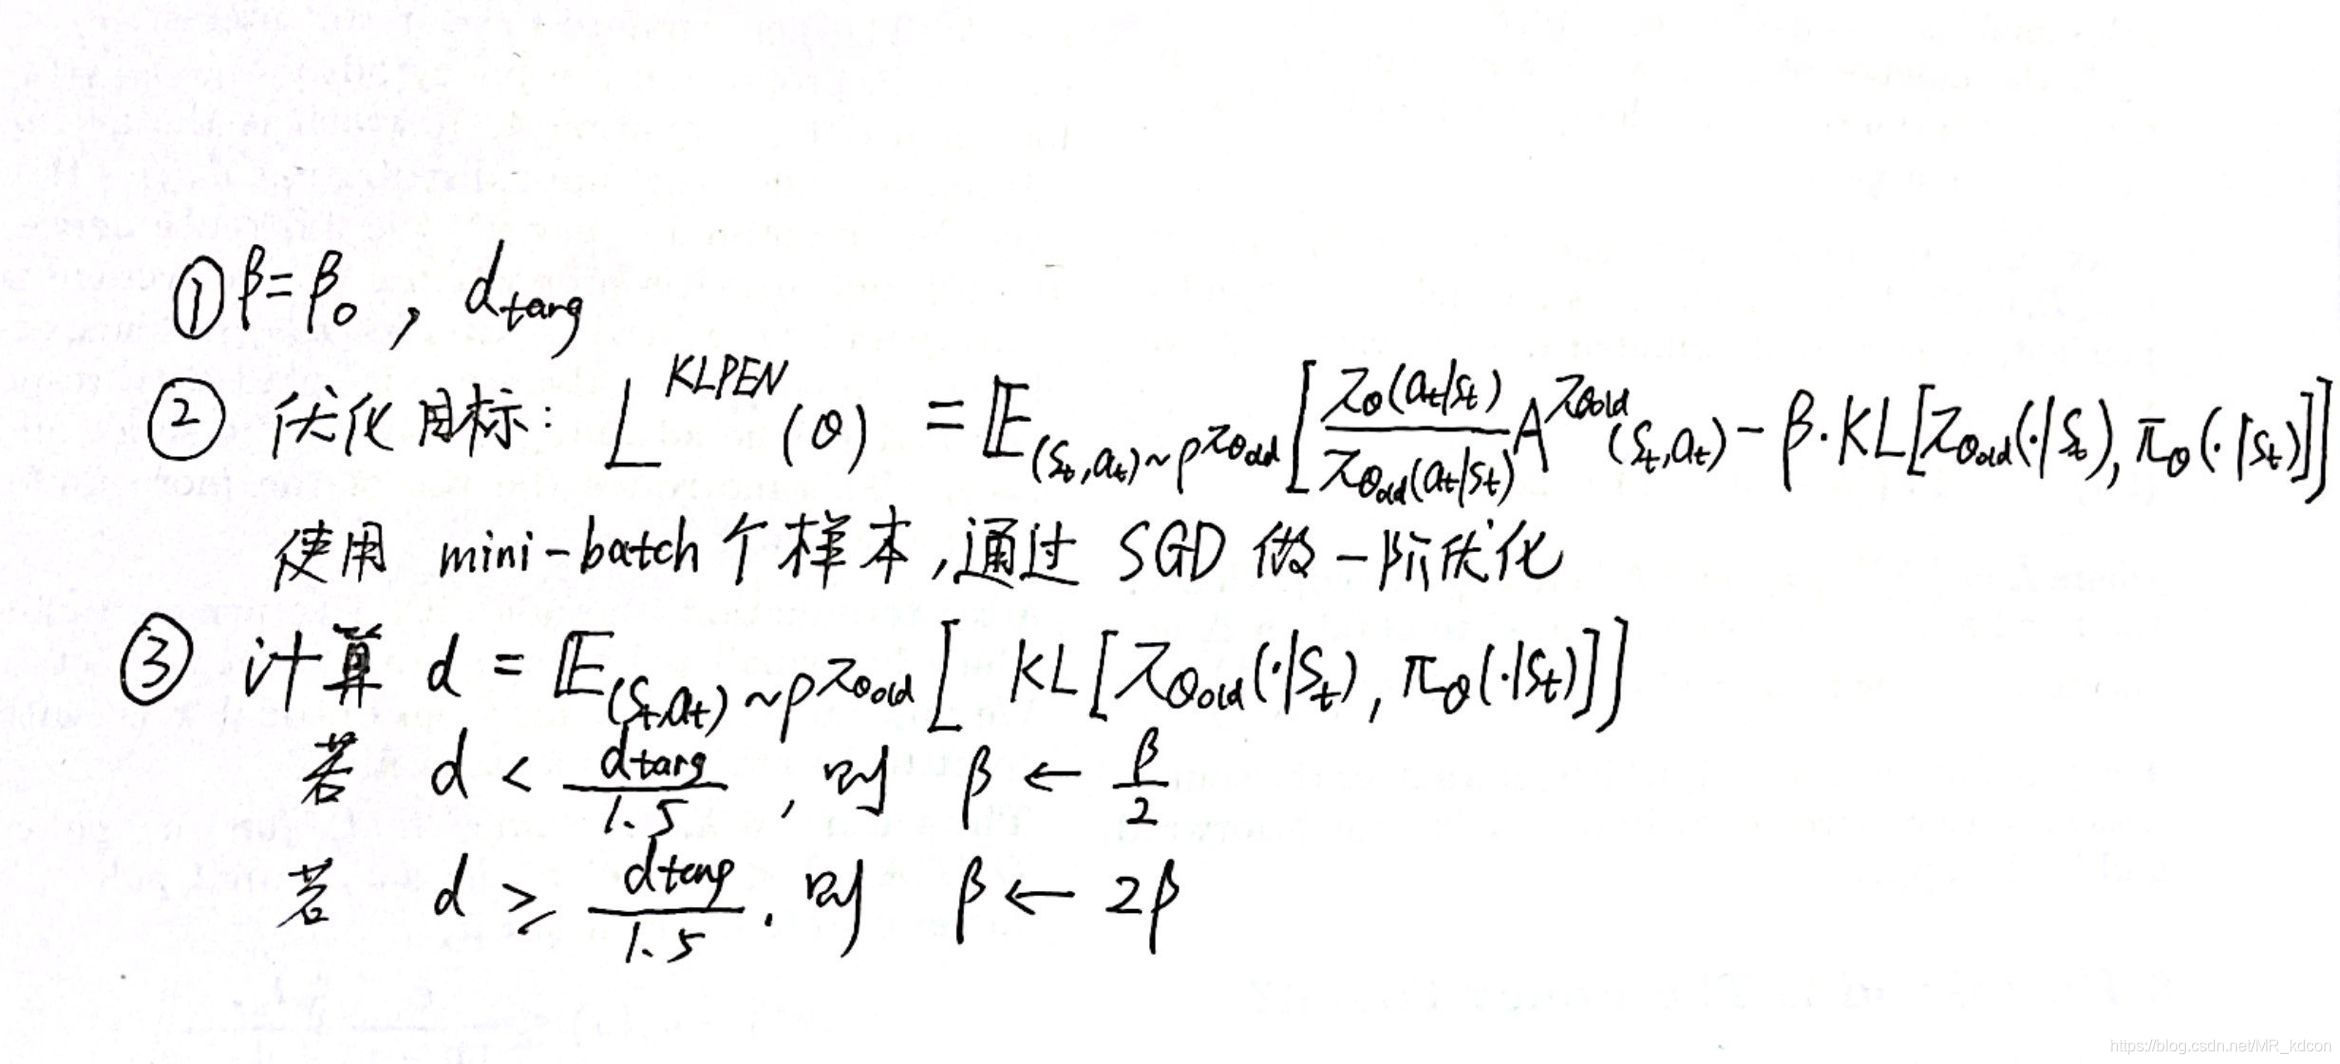 ① β = β₀ , d_targ
② 优化目标: L^{KLPEN}(θ) = 𝔼_{(s_t,a_t)~ρ^{π_θold}} [ \frac{π_θ(a_t|s_t)}{π_θold(a_t|s_t)} A^{π_θold}(s_t,a_t) - β·KL[π_θold(·|s_t), π_θ(·|s_t)]]
使用 mini-batch 个样本,通过 SGD 做一阶优化
③ 计算 d = 𝔼_{(s_t,a_t)~ρ^{π_θold}} [ KL[π_θold(·|s_t), π_θ(·|s_t)]]
若 d < \frac{d_targ}{1.5} , 则 β ← \frac{β}{2}
若 d ≥ \frac{d_targ}{1.5} . 则 β ← 2β
https://blog.csdn.net/MR_kdcon